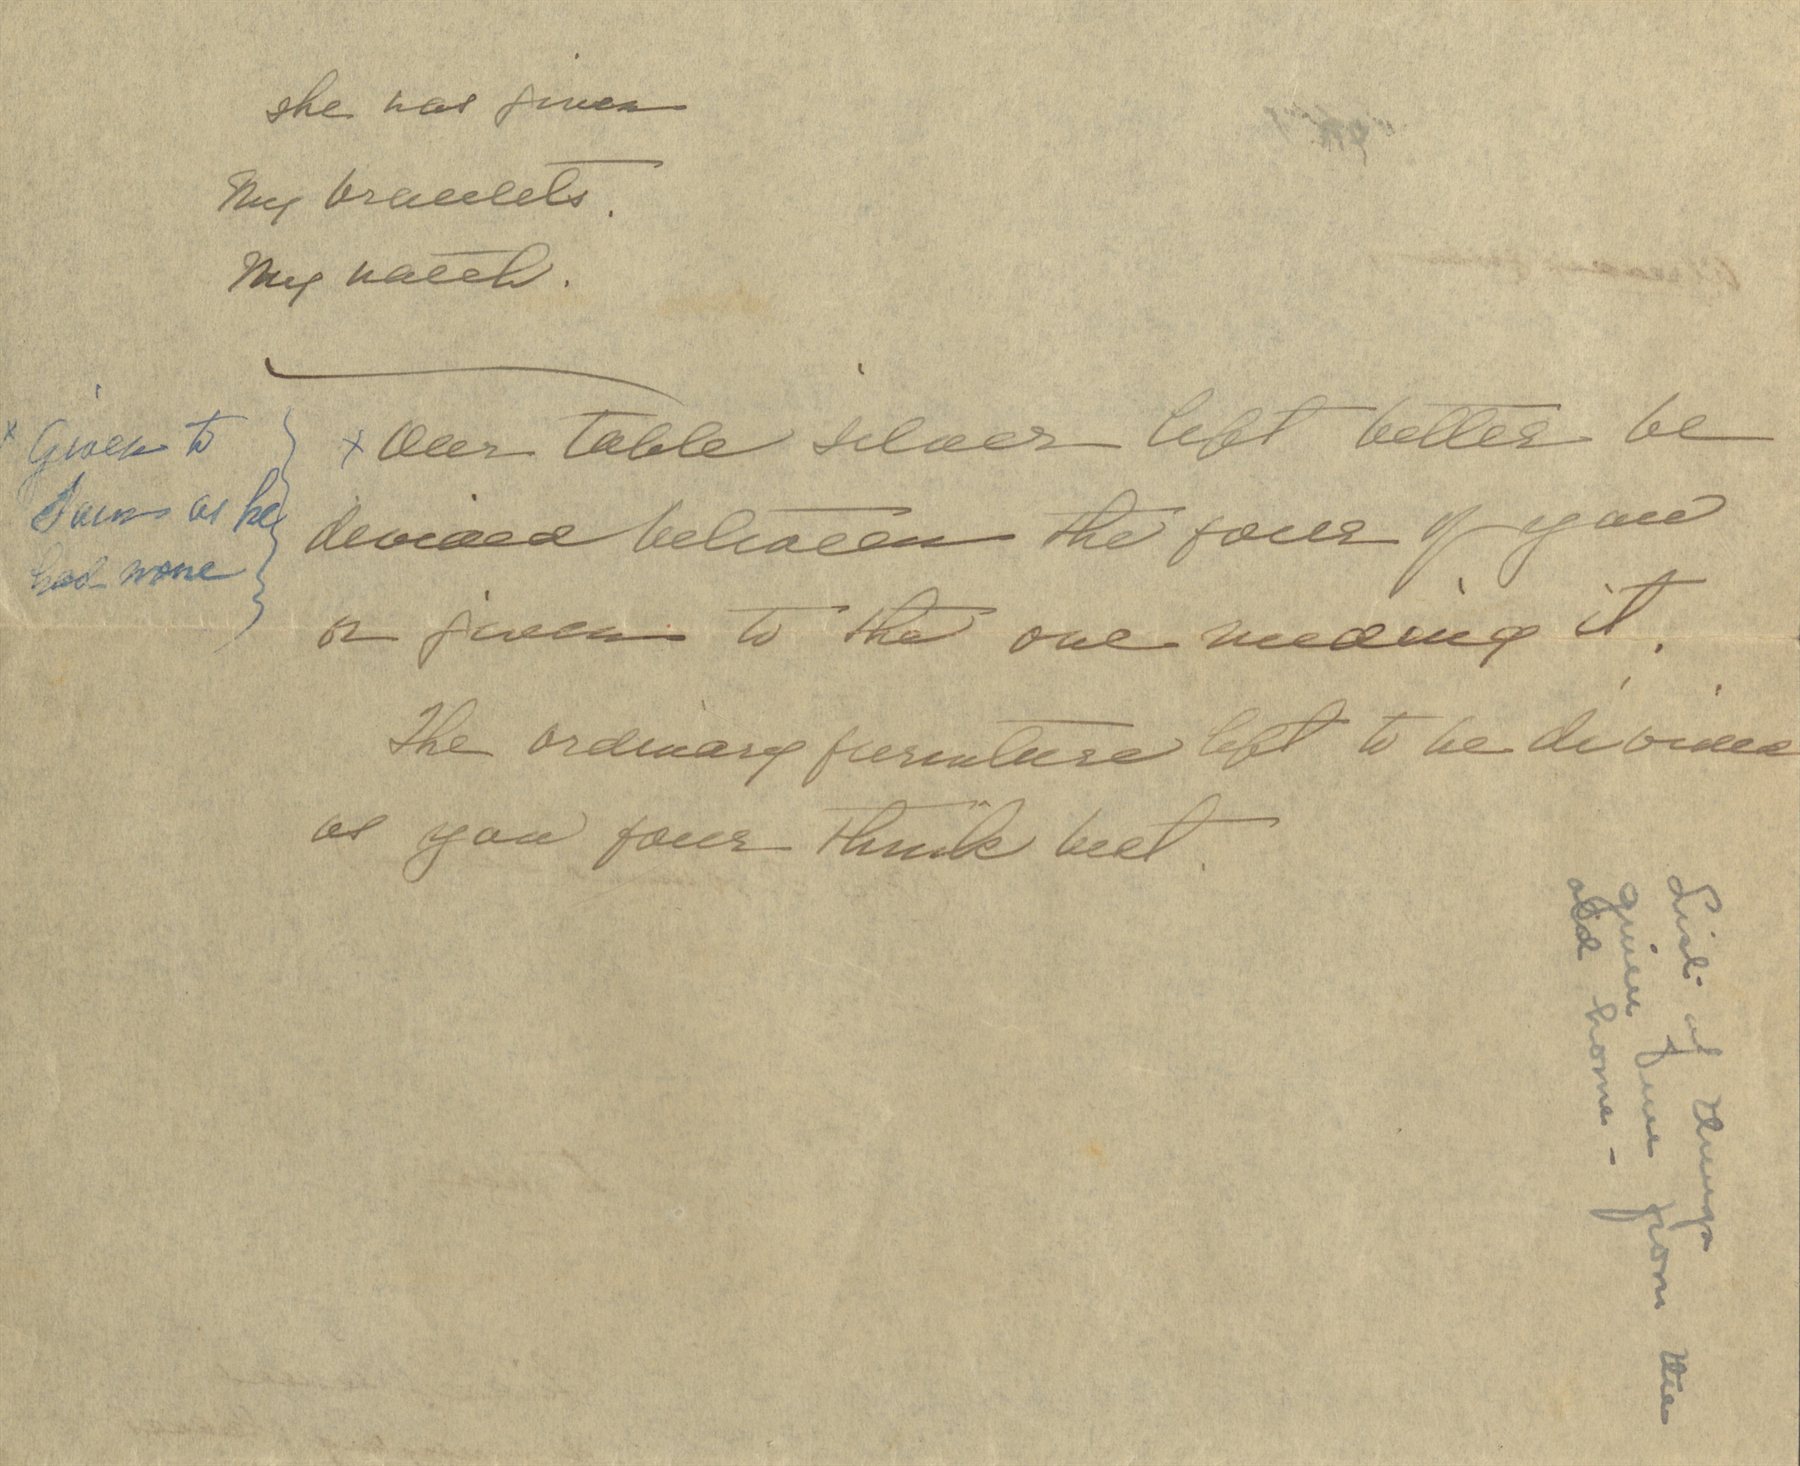 she was given
My bracelets.
My watch.
x Our table silver left better be
x Given to
as he
had none
devided between the four of you
or given to the one needing it.
The ordinary furniture left to be devided
as you four think best.
List of things
given from the
old home -